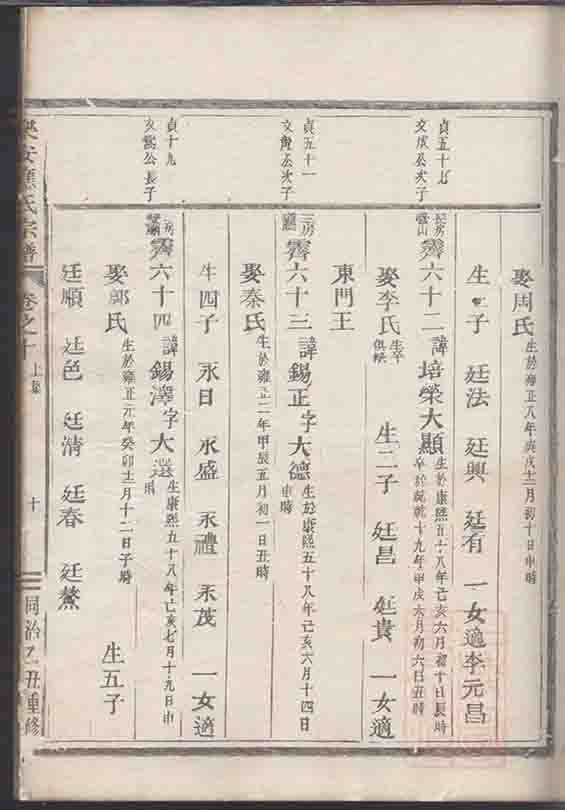 娶周氏生於雍正八年庚戌十二月初十日申時
生三子 廷法 廷興 廷有 一女適李元昌
貞五十七
文成公次子
長房霽六十二諱培榮大顯生於康熙五十八年己亥六月初十日辰時
卒於乾隆十九年甲戌六月初六日丑時
娶李氏生卒俱缺 生二子 廷昌 廷貴 一女適
東門王
貞五十一
公次子
三房霽六十三諱錫正字大德生於康熙五十八年己亥六月十四日申時
娶秦氏生於雍正二年甲辰五月初一日丑時
生四子 永日 永盛 永禮 永茂 一女適
貞十九
公長子
霽六十四諱錫澤字大選生康熙五十八年己亥七月十九日申時
娶郭氏生於雍正元年癸卯十一月十二日子時 生五子
廷順 廷色 廷清 廷春 廷鰲
樂安應氏宗譜 卷之十 上集 十 同治乙丑重修